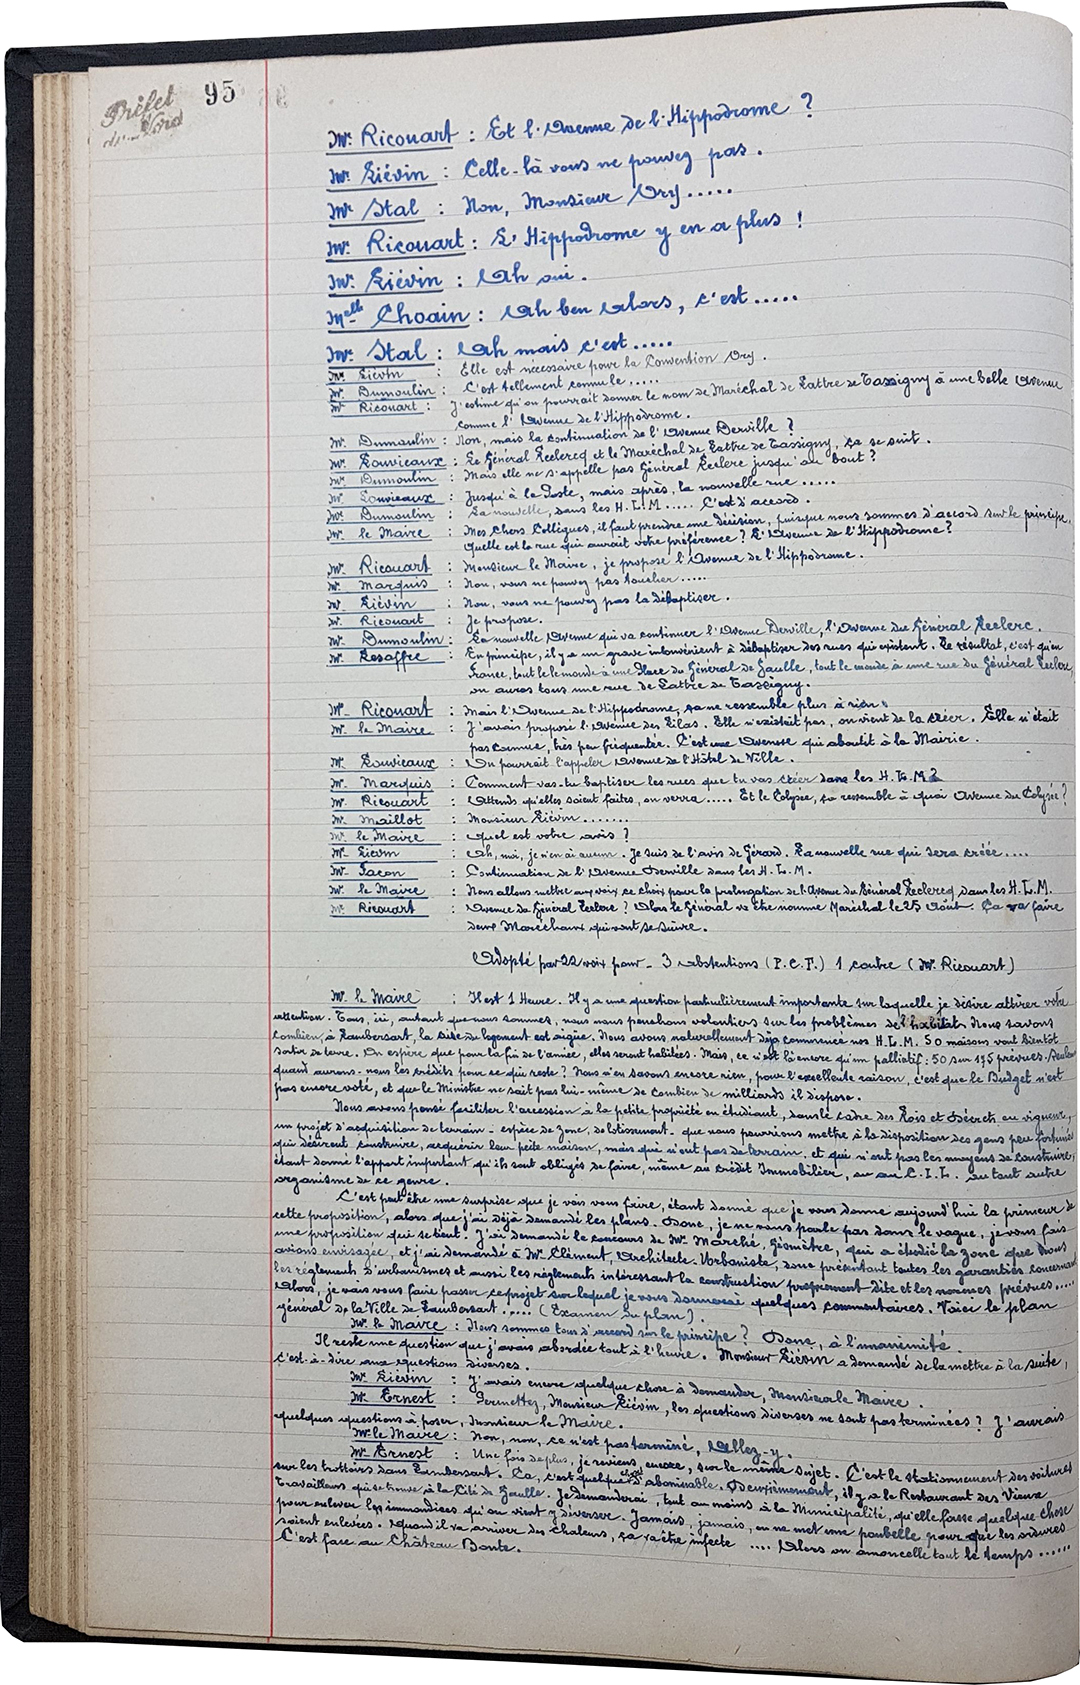 Préfet
du Nord
95
Mr Ricouart : Et l'Avenue de l'Hippodrome ?
Mr Liévin : Celle-là vous ne pouvez pas.
Mr Stal : Non, Monsieur Ory.....
Mr Ricouart : L'Hippodrome y en a plus !
Mr Liévin : Ah oui.
Melle Choain : Ah ben alors, c'est.....
Mr Stal : Ah mais c'est.....
Mr Liévin : Elle est nécessaire pour la Convention Ory.
Mr Dumoulin : C'est tellement connu le.....
Mr Ricouart : J'estime qu'on pourrait donner le nom de Maréchal de Lattre de Tassigny à une belle Avenue
comme l'Avenue de l'Hippodrome.
Mr Dumoulin : Non, mais la continuation de l'Avenue Derville ?
Mr Louvieaux : Le Général Leclercq et le Maréchal de Lattre de Tassigny, ça se suit.
Mr Dumoulin : Mais elle ne s'appelle pas Général Leclerc jusqu'au bout ?
Mr Louvieaux : Jusqu'à la Poste, mais après, la nouvelle rue.....
Mr Dumoulin : La nouvelle, dans les H.L.M..... C'est d'accord.
Mr le Maire : Mes Chers Collègues, il faut prendre une décision, puisque nous sommes d'accord sur le principe.
Quelle est la rue qui aurait votre préférence ? L'Avenue de l'Hippodrome ?
Mr Ricouart : Monsieur le Maire, je propose l'Avenue de l'Hippodrome.
Mr Marquis : Non, vous ne pouvez pas toucher.....
Mr Liévin : Non, vous ne pouvez pas la débaptiser.
Mr Ricouart : Je propose.
Mr Dumoulin : La nouvelle Avenue qui va continuer l'Avenue Derville, l'Avenue du Général Leclerc.
Mr Lesaffre : En principe, il y a un grave inconvénient à débaptiser des rues qui existent. Le résultat, c'est qu'en
France, tout le monde a une Place du Général de Gaulle, tout le monde a une rue du Général Leclerc,
on aura tous une rue de Lattre de Tassigny.
Mr Ricouart : Mais l'Avenue de l'Hippodrome, ça ne ressemble plus à rien.
Mr le Maire : J'avais proposé l'Avenue des Lilas. Elle n'existait pas, on vient de la créer. Elle n'était
pas connue, très peu fréquentée. C'est une Avenue qui aboutit à la Mairie.
Mr Louvieaux : On pourrait l'appeler Avenue de l'Hôtel de Ville.
Mr Marquis : Comment vas-tu baptiser les rues que tu vas créer dans les H.L.M ?
Mr Ricouart : Attends qu'elles soient faites, on verra..... Et le Colysée, ça ressemble à quoi Avenue du Colysée ?
Mr Maillot : Monsieur Liévin.......
Mr le Maire : Quel est votre avis ?
Mr Liévin : Ah, moi, je n'en ai aucun. Je suis de l'avis de Gérard. La nouvelle rue qui sera créée....
Mr Facon : Continuation de l'Avenue Derville dans les H.L.M.
Mr le Maire : Nous allons mettre aux voix ce choix pour la prolongation de l'Avenue du Général Leclercq dans les H.L.M.
Mr Ricouart : Avenue du Général Leclerc ? Alors le Général va être nommé Maréchal le 25 Août. Ça va faire
deux Maréchaux qui vont se suivre.
Adopté par 22 voix pour - 3 abstentions (P.C.F.) 1 contre (Mr Ricouart)
Mr le Maire : Il est 1 Heure. Il y a une question particulièrement importante sur laquelle je désire attirer votre
attention. Tous, ici, autant que nous sommes, nous nous penchons volontiers sur les problèmes de l'habitat. Nous savons
combien, à Lambersart, la crise de logement est aigüe. Nous avons naturellement déjà commencé nos H.L.M. 50 maisons vont bientôt
sortir de terre. On espère que pour la fin de l'année, elles seront habitées. Mais, ce n'est là encore qu'un palliatif : 50 sur 175 prévues.
quand aurons-nous les crédits pour ce qui reste ? Nous n'en savons encore rien, pour l'excellente raison, c'est que le Budget n'est
pas encore voté, et que le Ministre ne sait pas lui-même de combien de milliards il dispose.
Nous avons pensé faciliter l'accession à la petite propriété en étudiant, dans le cadre des Lois et Décrets en vigueur,
un projet d'acquisition de terrain - espèce de zone, de lotissement - que nous pourrions mettre à la disposition des gens peu fortunés
qui désirent construire, acquérir leur petite maison, mais qui n'ont pas de terrain, et qui n'ont pas les moyens de construire,
étant donné l'apport important qu'ils sont obligés de faire, même au Crédit Immobilier, ou au C.I.L. ou tout autre
organisme de ce genre.
C'est peut-être une surprise que je vais vous faire, étant donné que je vous donne aujourd'hui la primeur de
cette proposition, alors que j'ai déjà demandé les plans. Donc, je ne vous parle pas dans le vague, je vous fais
une proposition qui se tient. J'ai demandé le concours de Mr Marche, Géomètre, qui a étudié la zone que nous
avions envisagée, et j'ai demandé à Mr Clément, Architecte-Urbaniste, donc présentant toutes les garanties concernant
les règlements d'urbanismes et aussi les règlements intéressant la construction proprement dite et les normes prévues.....
Alors, je vais vous faire passer ce projet sur lequel je vous donnerai quelques commentaires. Voici le plan
général de la Ville de Lambersart..... (Examen du plan).
Mr le Maire : Nous sommes tous d'accord sur le principe ? Donc, à l'unanimité.
Il reste une question que j'avais abordée tout à l'heure. Monsieur Liévin a demandé de la mettre à la suite,
c'est-à-dire aux questions diverses.
Mr Liévin : J'avais encore quelque chose à demander, Monsieur le Maire.
Mr Ernest : Permettez, Monsieur Liévin, les questions diverses ne sont pas terminées ? J'aurais
quelques questions à poser, Monsieur le Maire.
Mr le Maire : Non, non, ce n'est pas terminé, Allez-y.
Mr Ernest : Une fois de plus, je reviens, encore, sur le même sujet. C'est le stationnement des voitures
sur les trottoirs dans Lambersart. Ça, c'est quelque chose d'abominable. Deuxièmement, il y a le Restaurant des Vieux
Travailleurs qui se trouve à la Cité de Gaulle. Je demanderai, tout au moins à la Municipalité, qu'elle fasse quelque chose
pour enlever les immondices qu'on vient y déverser. Jamais, jamais, on ne met une poubelle pour que les ordures
soient enlevées. Quand il va arriver des chaleurs, ça va être infecte.... Alors on amoncelle tout le temps......
C'est face au Château Bonte.